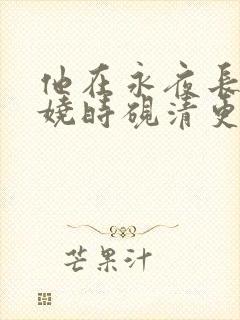 他在永夜長
嬈時硯清史
芒果汁